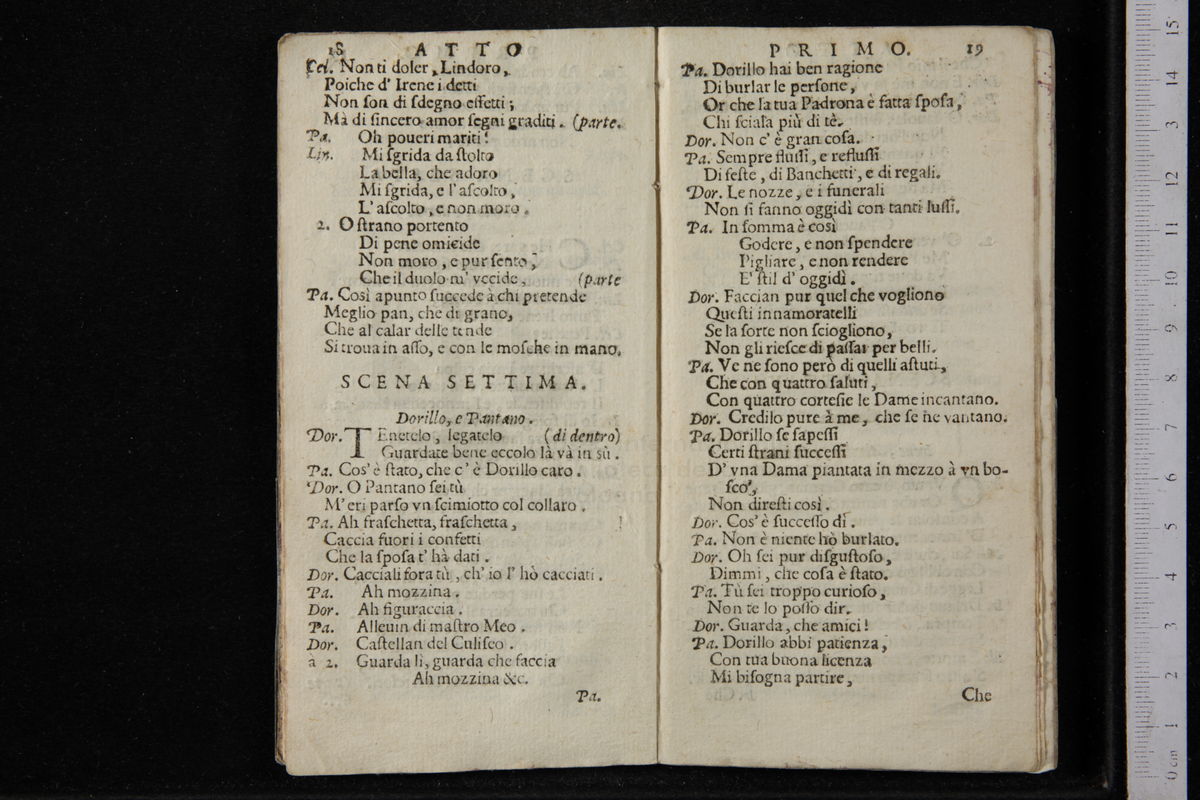 18 ATTO
Cel. Non ti doler, Lindoro,
Poiche d' Irene i detti
Non ſon di ſdegno effetti;
Mà di ſincero amor ſegni graditi. (parte.
Pa. Oh poueri mariti!
Lin. Mi ſgrida da ſtolto
La bella, che adoro
Mi ſgrida, e l' aſcolto,
L' aſcolto, e non moro.
2. O ſtrano portento
Di pene omicide
Non moro, e pur ſento,
Che il duolo m' vccide, (parte
Pa. Così apunto ſuccede à chi pretende
Meglio pan, che di grano,
Che al calar delle tende
Si troua in aſſo, e con le moſche in mano.
SCENA SETTIMA.
Dorillo, e Pantano.
Dor. TEnetelo, legatelo (di dentro)
Guardate bene eccolo là và in sù.
Pa. Cos' è ſtato, che c' è Dorillo caro.
Dor. O Pantano ſei tù
M' eri parſo vn ſcimiotto col collaro.
Pa. Ah fraſchetta, fraſchetta,
Caccia fuori i confetti
Che la ſpoſa t' hà dati.
Dor. Cacciali fora tù, ch' io l' hò cacciati.
Pa. Ah mozzina.
Dor. Ah figuraccia.
Pa. Alleuin di maſtro Meo.
Dor. Caſtellan del Culiſeo.
à 2. Guarda lì, guarda che faccia
Ah mozzina &c.
Pa.
PRIMO. 19
Pa. Dorillo hai ben ragione
Di burlar le perſone,
Or che la tua Padrona è fatta ſpoſa,
Chi ſciala più di tè.
Dor. Non c' è gran coſa.
Pa. Sempre fluſſi, e refluſſi
Di feſte, di Banchetti, e di regali.
Dor. Le nozze, e i funerali
Non ſi fanno oggidì con tanti luſſi.
Pa. In ſomma è così
Godere, e non ſpendere
Pigliare, e non rendere
E' ſtil d' oggidì.
Dor. Faccian pur quel che vogliono
Queſti innamoratelli
Se la ſorte non ſciogliono,
Non gli rieſce di paſſar per belli.
Pa. Ve ne ſono però di quelli aſtuti,
Che con quattro ſaluti,
Con quattro corteſie le Dame incantano.
Dor. Credilo pure à me, che ſe ne vantano.
Pa. Dorillo ſe ſapeſſi
Certi ſtrani ſucceſſi
D' vna Dama piantata in mezzo à vn bo-
ſco,
Non direſti così.
Dor. Cos' è ſucceſſo dì.
Pa. Non è niente hò burlato.
Dor. Oh ſei pur diſguſtoſo,
Dimmi, che coſa è ſtato.
Pa. Tù ſei troppo curioſo,
Non te lo poſſo dir.
Dor. Guarda, che amici!
Pa. Dorillo abbi patienza,
Con tua buona licenza
Mi biſogna partire,
Che
15
14
13
12
11
10
9
8
7
6
5
4
3
2
1
0 cm